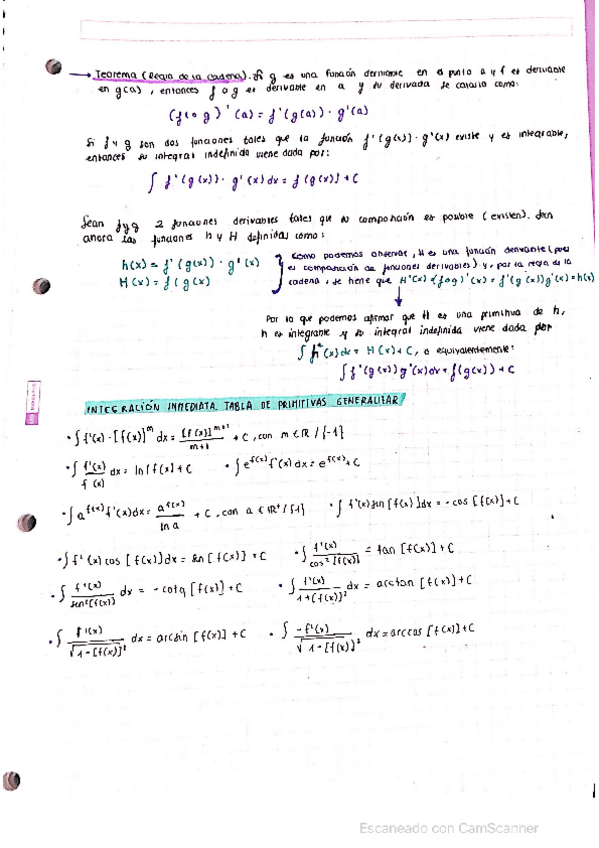 → Teorema (Regla de la cadena). Si g es una función derivable en el punto a y f es derivable
en g(a), entonces f o g es derivable en a y su derivada se calcula como:
(f o g)'(a) = f'(g(a)) · g'(a)
Si f y g son dos funciones tales que la función f'(g(x)) · g'(x) existe y es integrable,
entonces su integral indefinida viene dada por:
∫ f'(g(x)) · g'(x) dx = f(g(x)) + C
Sean f y g 2 funciones derivables tales que su composición es posible (existen). Sean
ahora las funciones h y H definidas como:
h(x) = f'(g(x)) · g'(x)
H(x) = f(g(x)
Como podemos observar, H es una función derivable (pues
es composición de funciones derivables) y, por la regla de la
cadena, se tiene que H'(x) = (f o g)'(x) = f'(g(x))g'(x) = h(x)
Por lo que podemos afirmar que H es una primitiva de h,
h es integrable y su integral indefinida viene dada por
∫ h(x)dx = H(x) + C, o equivalentemente:
∫ f'(g(x)) g'(x)dx = f(g(x)) + C
INTEGRACIÓN INMEDIATA. TABLA DE PRIMITIVAS GENERALIZAR
• ∫ f'(x) · [f(x)]^m dx = [f(x)]^(m+1) / (m+1) + C, con m ∈ ℝ / {-1}
• ∫ f'(x) / f(x) dx = ln |f(x) + C
• ∫ e^f(x) f'(x) dx = e^f(x) + C
• ∫ a^f(x) f'(x)dx = a^f(x) / ln a + C, con a ∈ ℝ⁺ / {1}
• ∫ f'(x) sen [f(x)] dx = - cos [f(x)] + C
• ∫ f'(x) cos [f(x)] dx = sen [f(x)] + C
• ∫ f'(x) / cos² [f(x)] = tan [f(x)] + C
• ∫ f'(x) / sen² [f(x)] dx = - cotg [f(x)] + C
• ∫ f'(x) / 1 + [f(x)]² dx = arctan [f(x)] + C
• ∫ f'(x) / √1-[f(x)]² dx = arcsin [f(x)] + C
• ∫ -f'(x) / √1-[f(x)]² dx = arccos [f(x)] + C
Escaneado con CamScanner